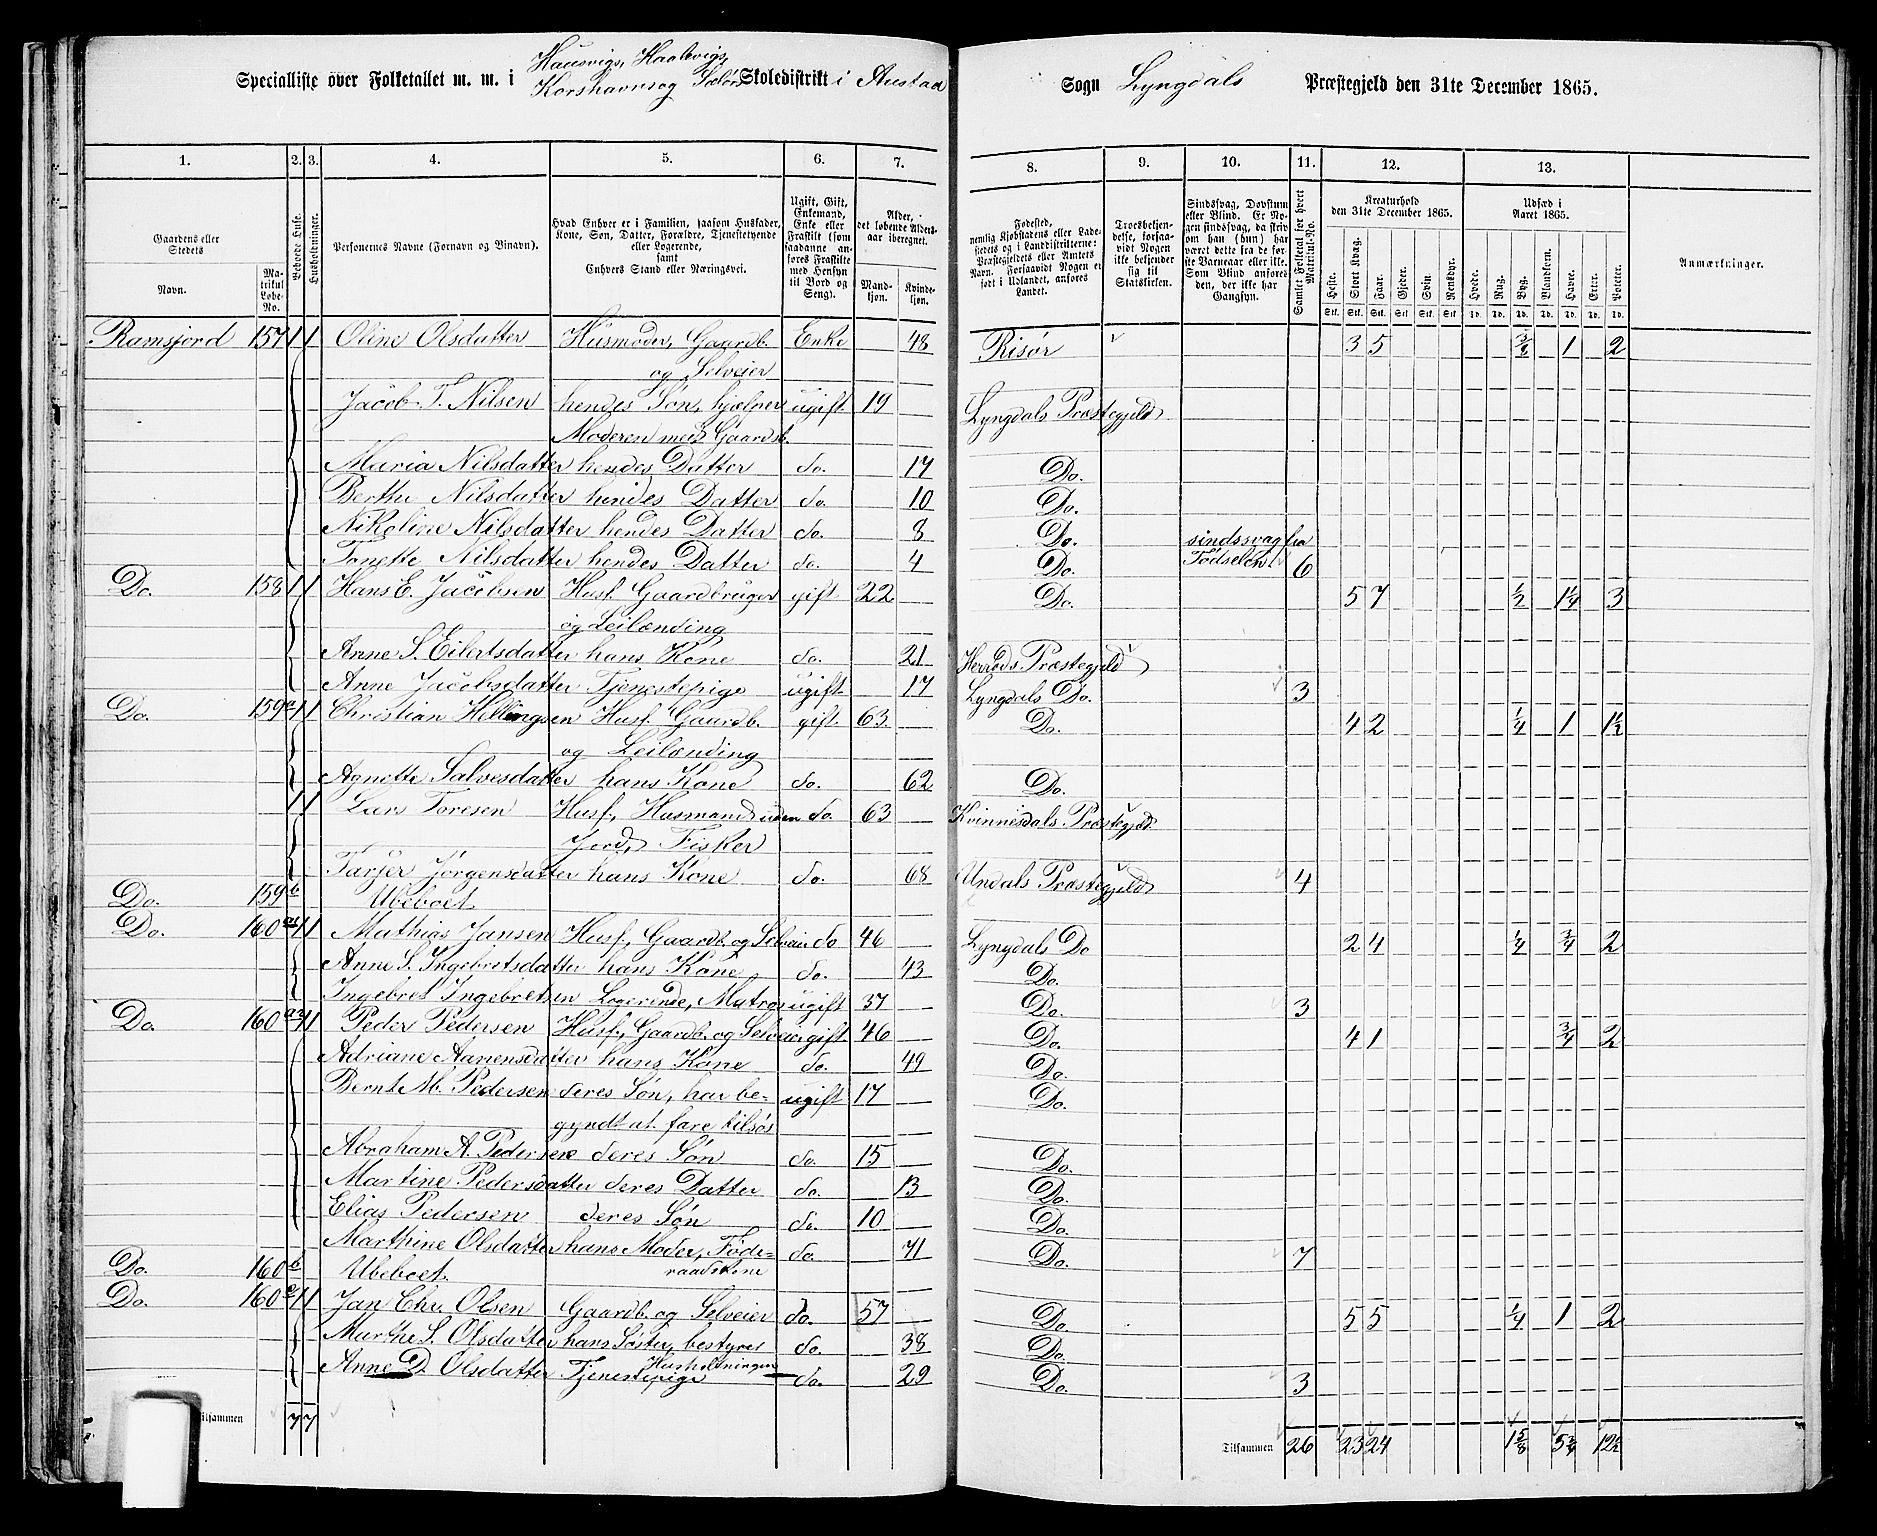 Hausvigs, Haabvigs,
Specialliste over Folketallet m. m. i Korshavns og Sælørs Skoledistrikt i Austad Sogn Lyngdals Præstegjeld den 31te December 1865.
1. 2. 3. 4. 5. 6. 7. 8. 9. 10. 11. 12. 13.
Gaardens eller Stedets Navn. Matrikul Løbe-No. Beboede Huse. Husholdninger. Personernes Navne (Fornavn og Binavn). Hvad Enhver er i Familien, saasom Husfader, Kone, Søn, Datter, Forældre, Tjenestetyende eller Logerende, samt Enhvers Stand eller Næringsvei. Ugift, Gift, Enkemand, Enke eller Fraskilt (som saadanne anføres Fraskilte med Hensyn til Bord og Seng). Alder, det løbende Alders-aar iberegnet. Mandkjøn. Kvindekjøn. Fødested, nemlig Kjøbstadens eller Ladestedets og i Landdistrikterne: Præstegjeldets eller Amtets Navn. Forsaavidt Nogen er født i Udlandet, anføres Landet. Troesbekjendelse, forsaavidt Nogen ikke bekjender sig til Statskirken. Sindsvag, Døvstum eller Blind. Er Nogen sindsvag, da skriv om han (hun) har været dette fra de første Barneaar eller ikke. Som Blind anføres den, der ikke har Gangsyn. Samlet Folketal for hvert Matrikul-No. Kreaturhold den 31te December 1865. Heste. Stort Kvæg. Faar. Gjeder. Svin. Rensdyr. Udsæd i Aaret 1865. Hvede. Rug. Byg. Blandkorn. Havre. Erter. Poteter. Anmærkninger.
Ramsfjord 157 1 1 Oline Olsdatter Husmoder, Gaardb. Enke 48 Risør 3 5 3/8 1 2
og Selveier
Jacob T. Nilsen hendes Søn, hjælper ugift 19 Lyngdals Præstegjeld
Moderen med Gaardsb.
Maria Nilsdatter hendes Datter do. 17 Do.
Berthe Nilsdatter hendes Datter do. 10 Do.
Nikoline Nilsdatter hendes Datter do. 8 Do. sindssvag fra
Tonette Nilsdatter hendes Datter do. 4 Do. Fødselen 6
Do. 158 1 1 Hans E. Jacobsen Husf. Gaardbruger gift 22 Do. 5 7 1/2 1 1/4 3
og Leilænding
Anne S. Eilertsdatter hans Kone do. 21 Herrøds Præstegjeld
Anne Jacobsdatter Tjenestepige ugift 17 Lyngdals Do. 3
Do. 159a 1 1 Christian Hellingsen Husf. Gaardb. gift 63 Do. 4 2 1/4 1 1 1/2
og Leilænding
Agnette Salvesdatter hans Kone do. 62 Do.
1 1 Lars Toresen Husf., Husmand uden do. 63 Kvinnesdals Præstegjeld
Jord, Fisker
Tarjer Jørgensdatter hans Kone do. 68 Undals Præstegjeld 4
Do. 159b Ubeboet.
Do. 160 a1 1 1 Mathias Jansen Husf., Gaardb. og Selveier do 46 Lyngdals Do 2 4 1/4 3/4 2
Anne S. Ingebretsdatter hans Kone do. 43 Do.
Ingebret Ingebretsen Logerende, Matros ugift 37 Do. 3
Do. 160 a2 1 1 Peder Pedersen Husf., Gaardb. og Selveier gift 46 Do. 4 1 3/4 2
Adriane Aanensdatter hans Kone do. 49 Do.
Bernt M. Pedersen deres Søn, har be- ugift 17 Do.
gyndt at fare tilsøs
Abraham A. Pedersen deres Søn do. 15 Do.
Martine Pedersdatter deres Datter do. 13 Do.
Elias Pedersen deres Søn do. 10 Do.
Marthine Olsdatter hans Moder, Føde- do. 71 Do. 7
raadskone
Do. 160b Ubeboet.
Do. 160c 1 1 Jan Chr. Olsen Gaardb. og Selveier do. 57 Do. 5 5 1/4 1 2
Marthe S. Olsdatter hans Søster, bestyrer do. 38 Do.
Husholdningen
Anne D. Olsdatter Tjenestepige do. 29 Do. 3
Tilsammen 7 7 Tilsammen 26 23 24 1 5/8 5 3/4 12 1/2